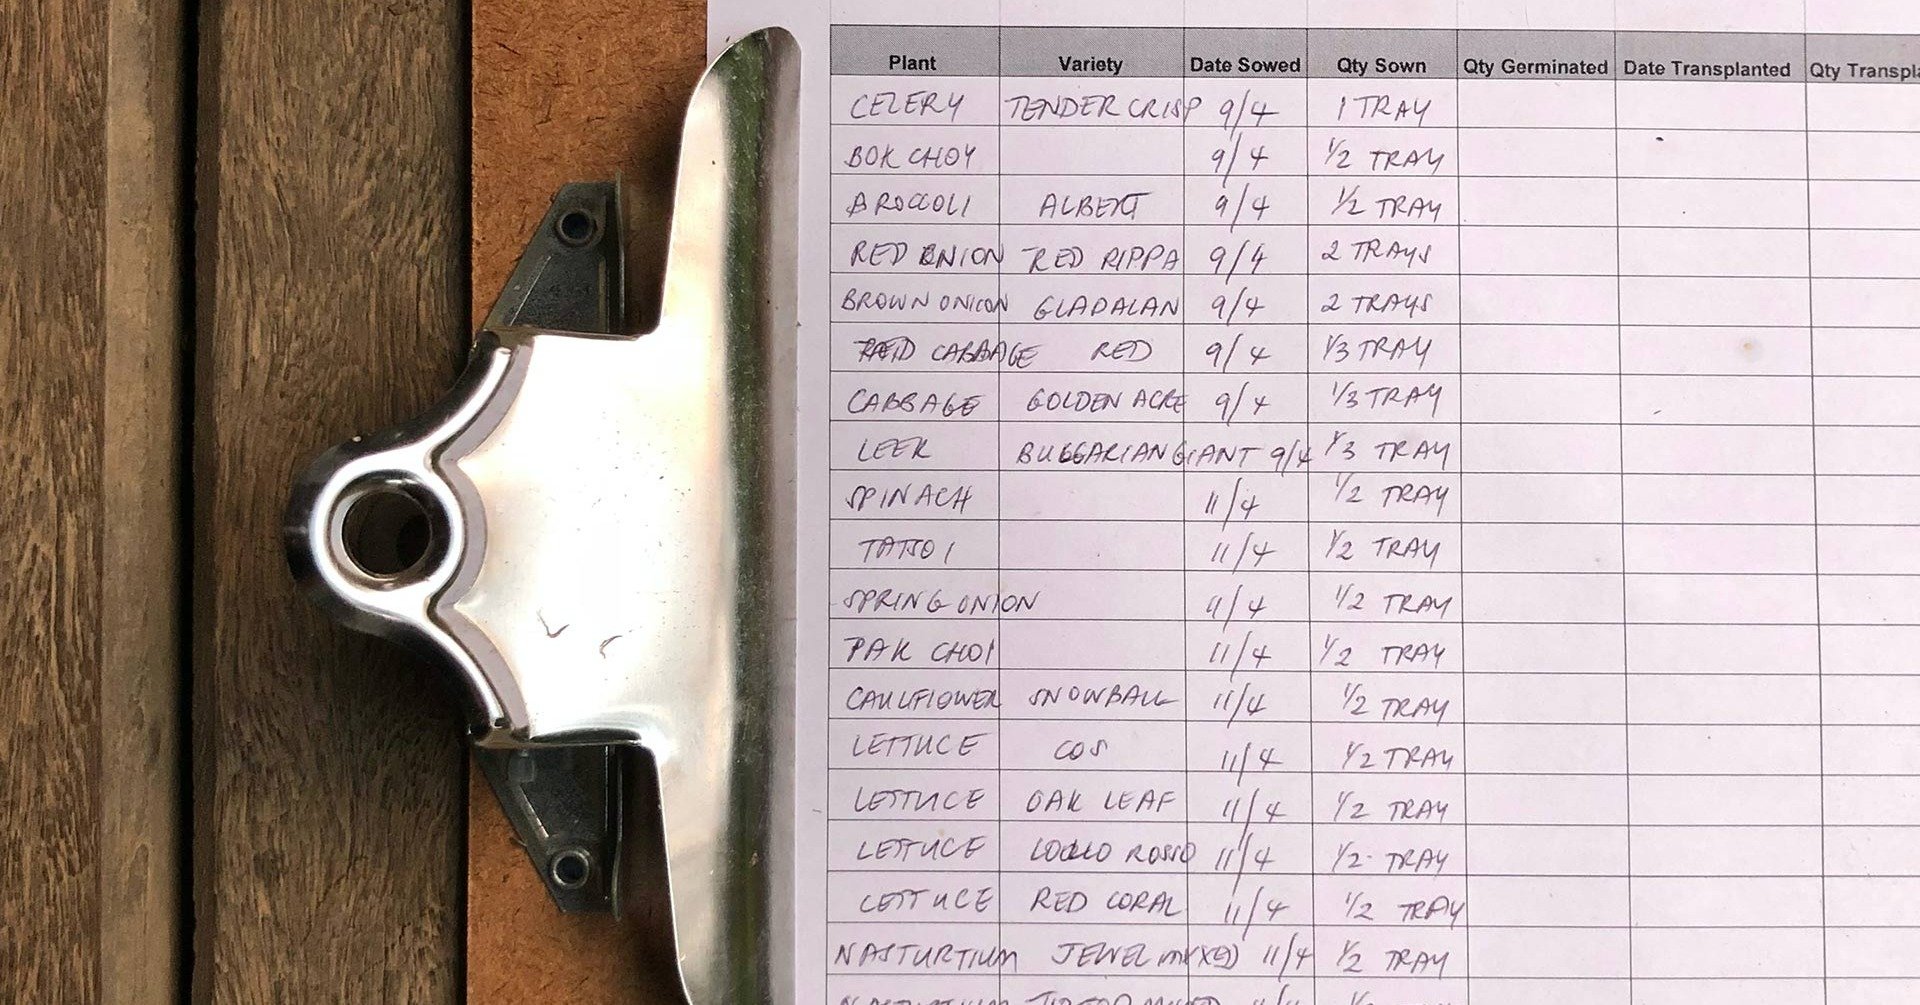 Plant Variety Date Sowed Qty Sown Qty Germinated Date Transplanted Qty Transpla
CELERY TENDER CRISP 9/4 1 TRAY
BOK CHOY 9/4 1/2 TRAY
BROCCOLI ALBERT 9/4 1/2 TRAY
RED ONION RED RIPPA 9/4 2 TRAYS
BROWN ONION GLADALAN 9/4 2 TRAYS
RED CABBAGE RED 9/4 1/3 TRAY
CABBAGE GOLDEN ACRE 9/4 1/3 TRAY
LEEK BULGARIAN GIANT 9/4 1/3 TRAY
SPINACH 11/4 1/2 TRAY
TATSOI 11/4 1/2 TRAY
SPRING ONION 11/4 1/2 TRAY
PAK CHOI 11/4 1/2 TRAY
CAULIFLOWER SNOWBALL 11/4 1/2 TRAY
LETTUCE COS 11/4 1/2 TRAY
LETTUCE OAK LEAF 11/4 1/2 TRAY
LETTUCE LOLLO ROSSO 11/4 1/2 TRAY
LETTUCE RED CORAL 11/4 1/2 TRAY
NASTURTIUM JEWEL MIXED 11/4 1/2 TRAY
NASTURTIUM